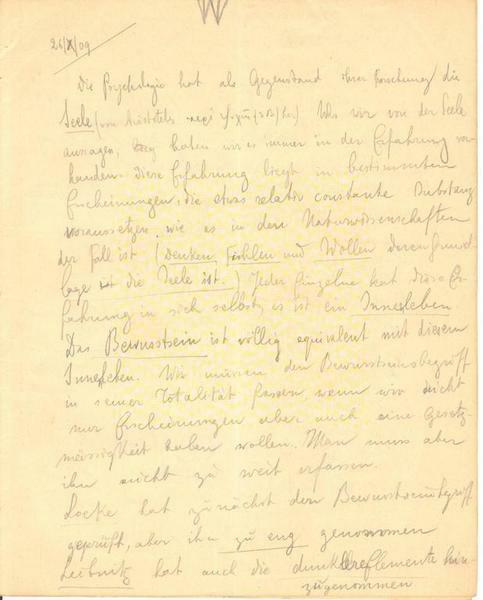 W
26/X/09
Die Psychologie hat als Gegenstand ihrer Forschung die
Seele (von Aristoteles περὶ ψυχῆς (3 B) her). Was wir von der Seele
aussagen, haben wir es immer in der Erfahrung vor-
handen. Diese Erfahrung liegt in bestimmten
Erscheinungen, die etwas relativ constante Substanz
voraussetzen, wie es in den Naturwissenschaften
der Fall ist (Denken, Fühlen und Wollen deren Grund-
lage ist die Seele ist.) Jeder Einzelne hat diese Er-
fahrung in sich selbst, es ist ein Innenleben
Das Bewusstsein ist völlig equivalent mit diesem
Innenleben. Wir müssen den Bewusstseinsbegriff
in seiner Totalität fassen, wenn wir nicht
nur Erscheinungen aber auch eine Gesetz-
mässigkeit haben wollen. Man muss aber
ihn nicht zu weit erfassen.
Locke hat zunächst den Bewusstseinsbegriff
geprüft, aber ihn zu eng genommen
Leibnitz hat auch die dunklere Elemente hin-
zugenommen